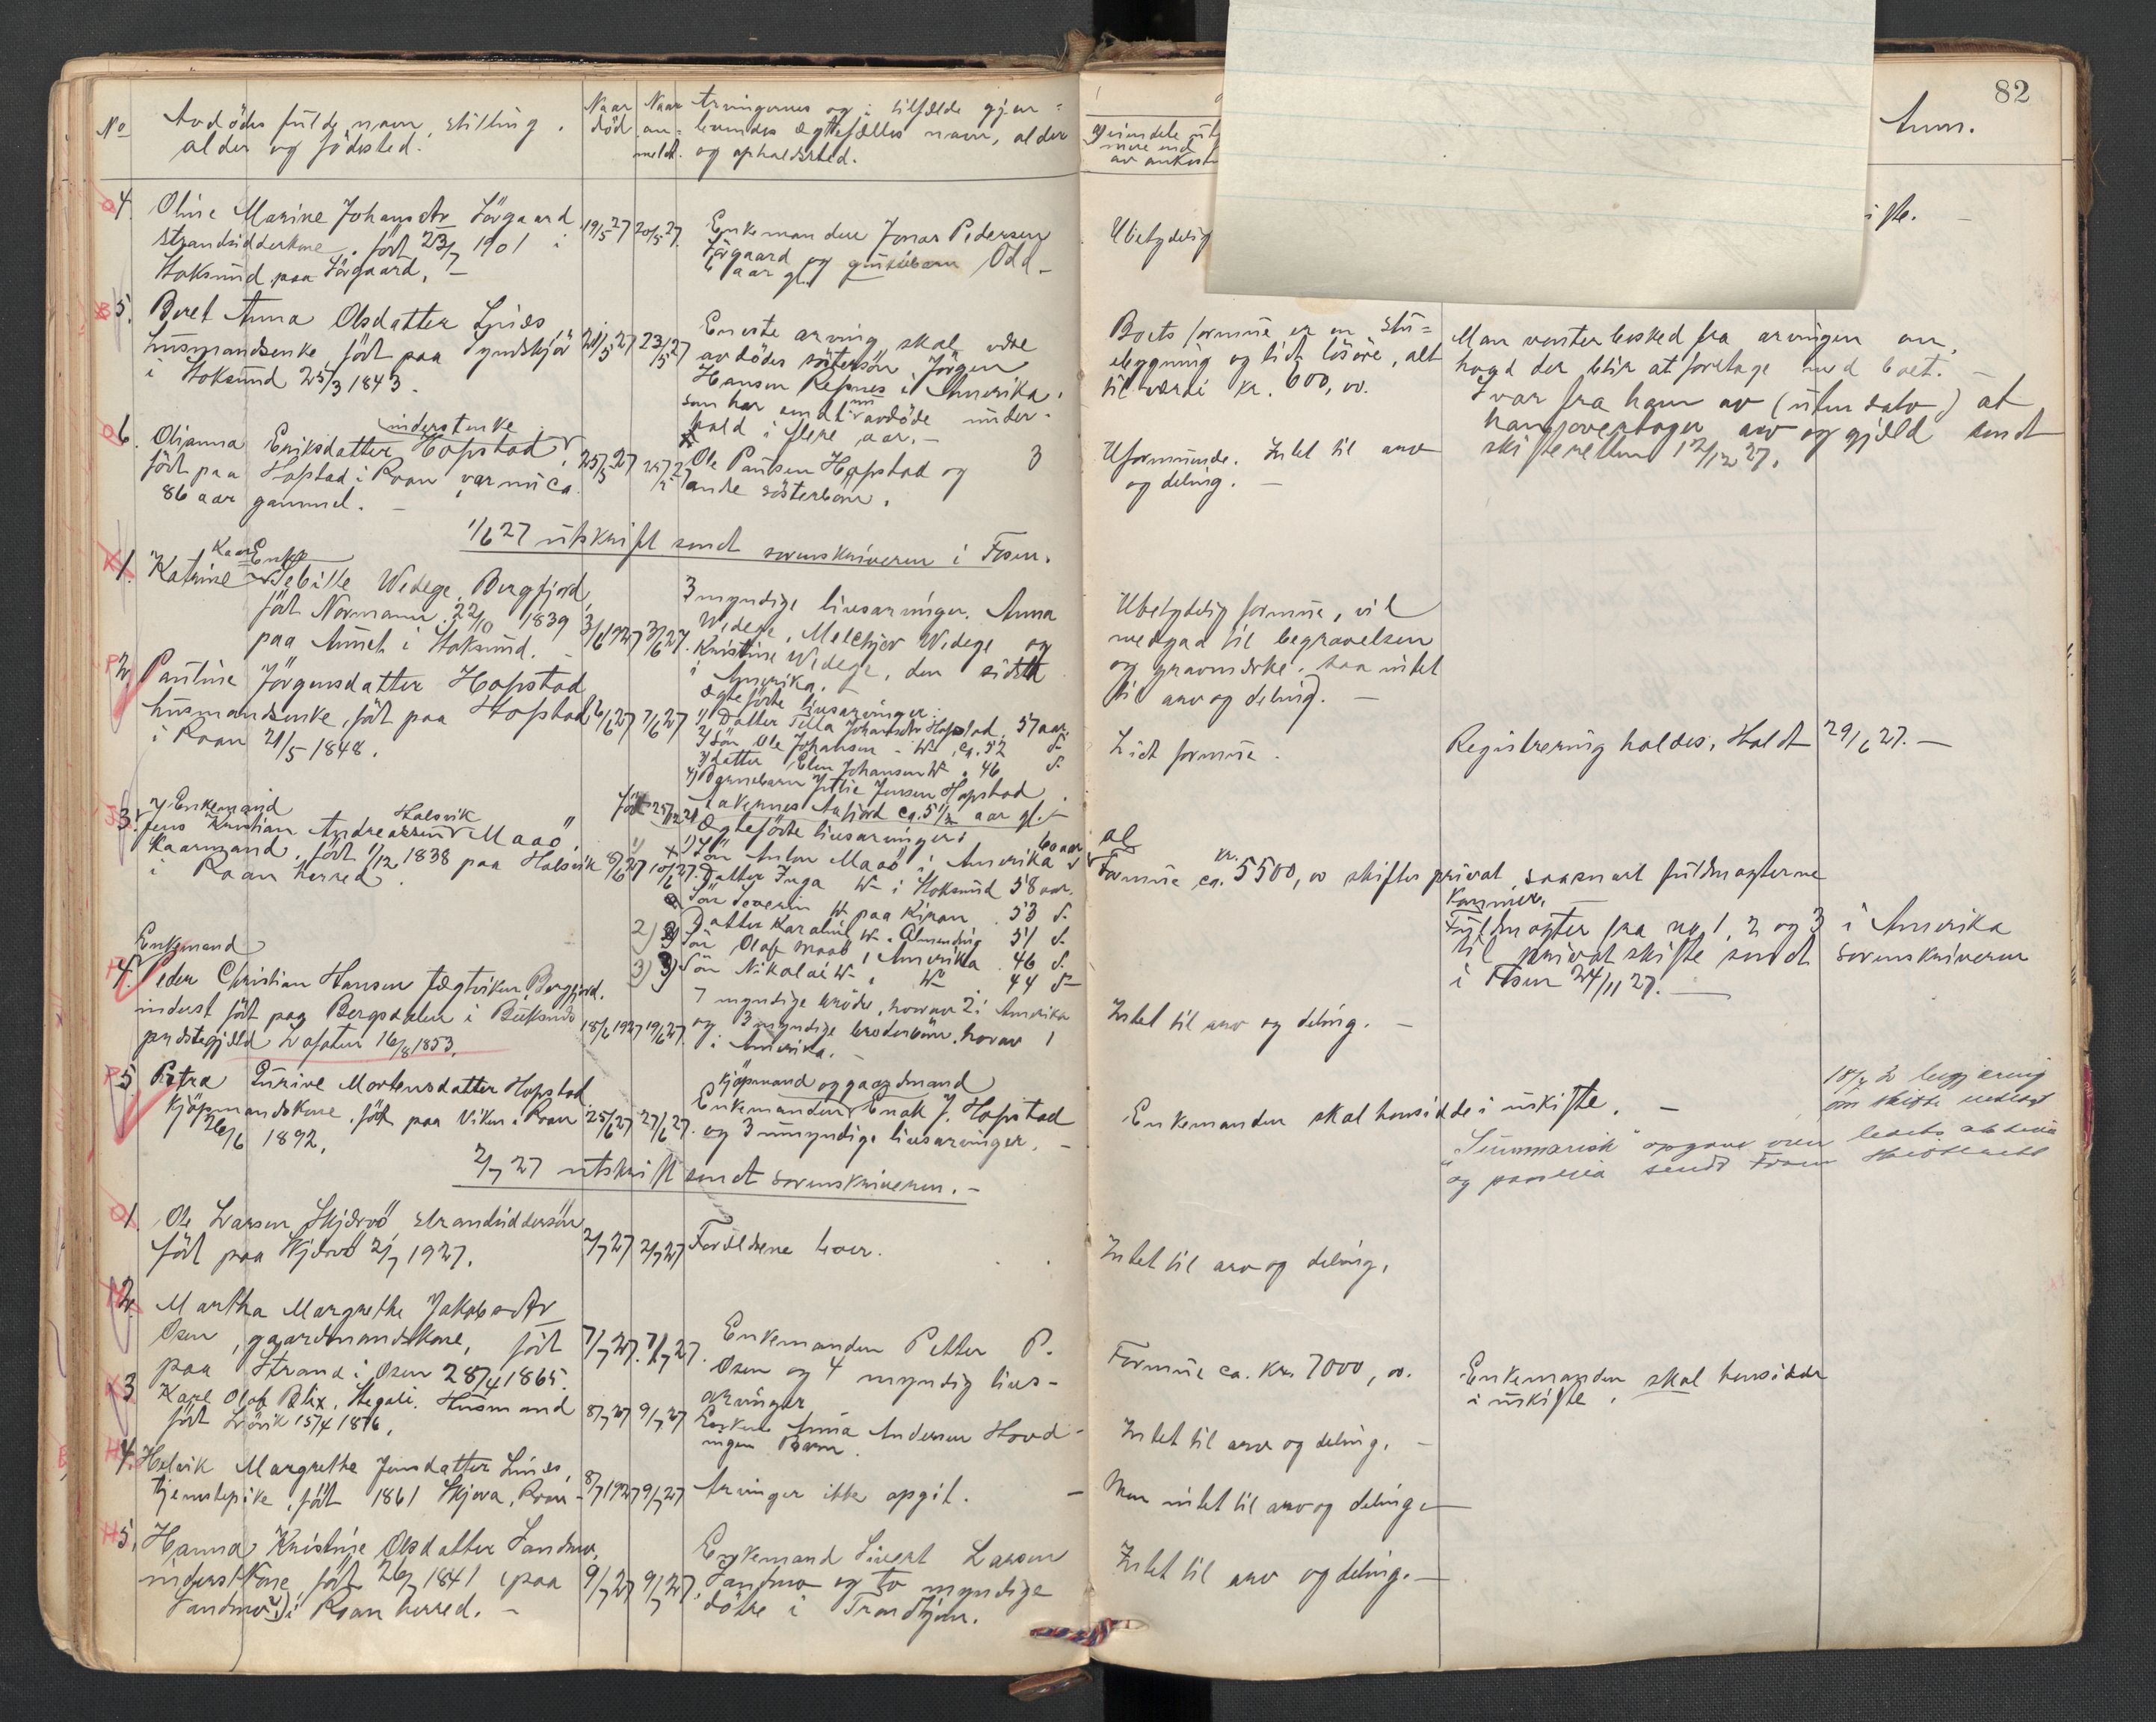 82
No
Avdödes fulde navn, stilling,
alder og födested.
Naar
död
Naar
an-
meldt.
Arvingernes og i tilfælde gjen-
levendes ægtefælles navn, alder
og opholdssted.
Anm.
4. Oline Marine Johansdtr Sörgaard
strandsidderkone, född 23/7 1901 i
Stoksund paa Sörgaard. –
19/5 27
20/5 27.
Enkemanden Jonas Pedersen
Sörgaard og Odd
6 aar gl.
Ubetydelig
5. Beret Anna Olsdatter
husmandsenke, född paa
i Stoksund 25/3 1843.
21/5 27
23/5 27
Eneste arving skal være
avdödes söstersön Jörgen
Hansen Refsnes i Amerika
som har sendt nu avdöde under-
hold i flere aar. –
Boets formue er en stu-
ebygning og lidt lösöre, alt
til værdi kr. 600,00.
Man venter besked fra arvingen om,
hvad der blir at foretage med boet. –
Svar fra ham av (uten dato) at
han overtager arv og gjæld sendt
skifteretten 12/12 27.
6. Olianna Eriksdatter Hopstad
inderstenke
född paa Hopstad i Roan, var nu ca.
86 aar gammel. –
25/5 27
Ole Paulsen Hopstad og 3
andre sösterbarn.
Uformuende. Intet til arv
og deling. –
1/6 27 utskrift sendt sorenskriveren i Fosen.
1. Kaarenke
Katrine Sebille Wedege, Bergfjord,
född Normann 22/10 1839
paa i Stoksund. –
3/6 1927
3/6 27.
3 myndige livsarvinger. Anna
Wedege, Melchjor Wedege og
Kristine Wedege, den sidste
i Amerika. –
Ubetydelig formue, vil
medgaa til begravelsen
og gravmærke, saa intet
til arv og deling. –
2. Pauline Jörgensdatter Hopstad
husmandsenke, född paa Hopstad
i Roan 21/5 1848.
6/6 27
7/6 27
Ægtefödte livsarvinger:
1) Datter Johansdtr Hopstad, 57 aar.
2) Sön Ole Johansen – W –, ca. 52
3) Datter Elen Johansen W – 46
4) Barnebarn Jensen Hopstad
ca. 5 1/2 aar gl. –
Lidt formue.
Registrering holdes. Holdt 29/6 27. –
3. Enkemand
Jens Kristian Andreassen Halsvik Maaö,
kaarmand, född 1/12 1838 paa Halsvik
i Roan herred.
8/6 27
10/6 27.
Ægtefödte livsarvinger:
1) Sön Anton Maaö i Amerika 60 aar
Datter Inga W – i Stoksund 58 aar.
Sön Severin W – paa Kiran. 53
Datter Karoline W – Almending 51
2) Sön Olaf Maaö i Amerika. 46
3) Sön Nikolai W – " W – 44
al
Formue ca. kr. 5500,00 skiftes privat, saasnart fuldmagterne
kommer. –
Fuldmagter fra no 1, 2 og 3 i Amerika
til privat skifte sendt sorenskriveren
i Fosen 24/11 27. –
4. Enkemand
Peder Christian Hansen Jægtviken, Bergfjord.
inderst född paa Bergsdalen i Buksnes
prestegjeld Lofoten 16/8 1853.
18/6 1927
19/6 27.
7 myndige brödre, horav 2 i Amerika
og 3 myndige broderbörn, horav 1
i Amerika. –
Intet til arv og deling. –
5. Petra Mortensdatter Hopstad.
Kjöpmandskone, född paa Viken i Roan
26/6 1892.
25/6 27
27/6 27.
kjöpmand og gaardmand
Enkemanden Enok J. Hopstad
og 3 umyndige livsarvinger. –
Enkemanden skal hensidde i uskifte. –
18/7 begjæring
om skifte
"Summarisk" opgave over boets aktiva
og passiva sendt Fosen skifterett
2/7 27 utskrift sendt sorenskriveren. –
1. Ole Larsen Skjærvö, strandsiddersön
född paa Skjærvö 2/7 1927.
2/7 27
2/7 27
Forældrene lever.
Intet til arv og deling.
2. Martha Margrethe Jakobsdtr
Osen, gaardmandskone, född
paa Strand i Osen 28/4 1865.
7/7 27.
7/7 27.
Enkemanden Petter P.
Osen og 4 myndig livs-
arvinger
Formue ca. kr. 7000,00.
Enkemanden skal hensidde
i uskifte.
3. Karl Olaf Blix, Husmand
född 15/4 1876.
8/7 27
9/7 27
Enken Anna Andersen Hovd
ingen Barn.
Intet til arv og deling. –
4. Margrethe Jensdatter
tjenestepike, född 1861 Skjera, Roan –
8/7 1927
9/7 27
Arvinger ikke opgit. –
Men intet til arv og deling. –
5. Hanna Kristine Olsdatter Sandmo,
inderstkone, född 26/7 1841 (paa
Sandmo) i Roan herred. –
9/7 27
9/7 27.
Enkemand Sivert Larsen
Sandmo og to myndige
dötre i Trondhjem.
Intet til arv og deling. –